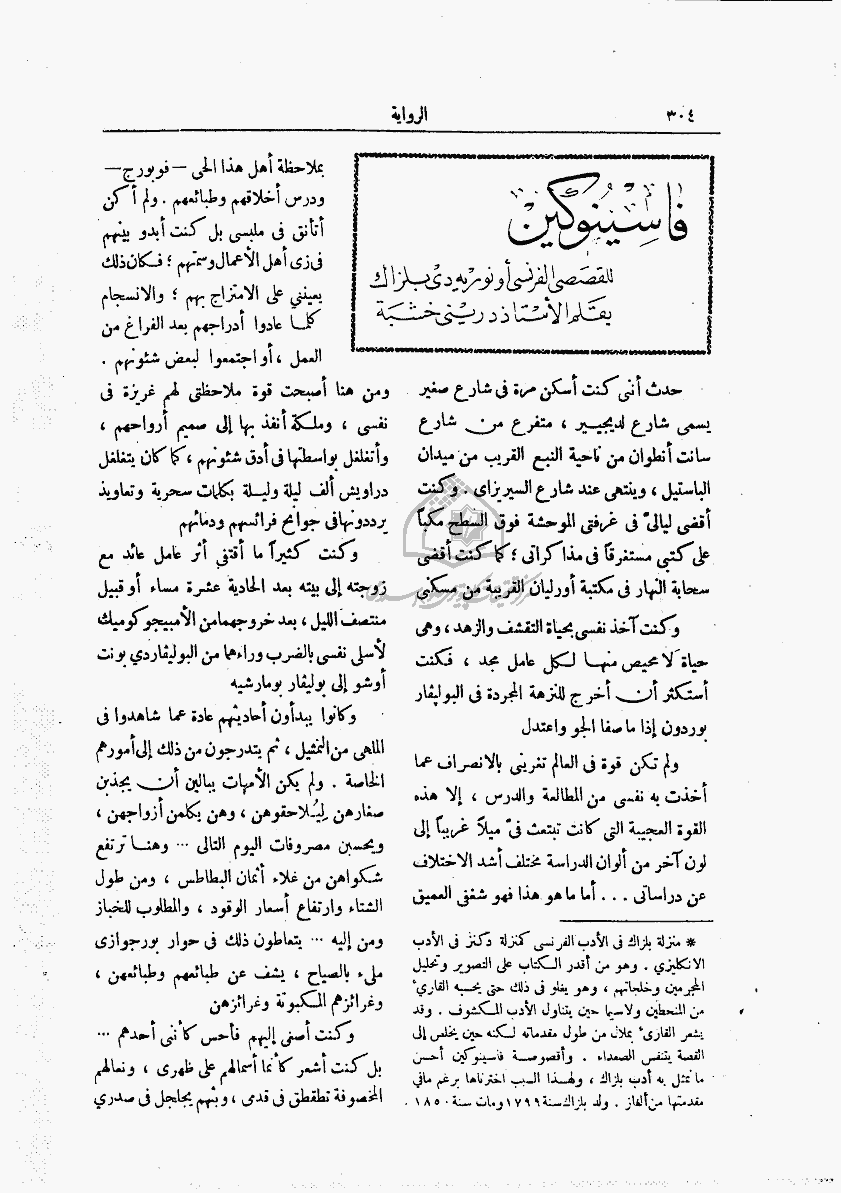 ٣٠٤
الرواية
فاسينوكين
للقصصى الفرنسى أونوريه دى بلزاك
بقلم الأستاذ درينى خشبة
حدث أننى كنت أسكن مرة فى شارع صغير
يسمى شارع لديجيير ، متفرع من شارع
سانت أنطوان من ناحية النبع القريب من ميدان
الباستيل ، وينتهى عند شارع السيريزاى . وكنت
أقضى ليالىّ فى غرفتى الموحشة فوق السطح مكباً
على كتبى مستغرقاً فى مذاكراتى ؛ كما كنت أقضى
سحابة النهار فى مكتبة أورليان القريبة من مسكنى
وكنت آخذ نفسى بحياة التقشف والزهد ، وهى
حياة لا محيص منها لكل عامل مجد ، فكنت
أستكثر أن أخرج للنزهة المجردة فى البوليڤار
بوردون إذا ما صفا الجو واعتدل
ولم تكن قوة فى العالم تغرينى بالانصراف عما
أخذت به نفسى من المطالعة والدرس ، إلا هذه
القوة العجيبة التى كانت تبتعث فىّ ميلاً غريباً إلى
لون آخر من ألوان الدراسة مختلف أشد الاختلاف
عن دراساتى . . . أما ما هو هذا فهو شغفى العميق
* منزلة بلزاك فى الأدب الفرنسى كمنزلة دكنز فى الأدب
الانكليزى . وهو من أقدر الكتاب على التصوير وتحليل
المجرمين وخلجاتهم ، وهو يغلو فى ذلك حتى يحسبه القارىء
من المنحطين ولاسيما حين يتناول الأدب المكشوف . وقد
يشعر القارىء بملال من طول مقدماته لكنه حين يخلص إلى
القصة يتنفس الصعداء . وأقصوصة فاسينوكين أحسن
ما تمثل به أدب بلزاك ، ولهذا السبب اخترناها برغم مافي
مقدمتها من ألفاز . ولد بلزاك سنة ١٧٩٩ ومات سنة ١٨٥٠ .
بملاحظة أهل هذا الحى — فوبورج —
ودرس أخلاقهم وطبائعهم . ولم أكن
أتأنق فى ملبسى بل كنت أبدو بينهم
فى زى أهل الأعمال وسمتهم ؛ فكان ذلك
يعيننى على الامتزاج بهم ؛ والانسجام
كلما عادوا أدراجهم بعد الفراغ من
العمل ، أو اجتمعوا لبعض شئونهم .
ومن هنا أصبحت قوة ملاحظتى لهم غريزة فى
نفسى ، وملكة أنفذ بها إلى صميم أرواحهم ،
وأتغلغل بواسطتها فى أدق شئونهم ، كما كان يتغلغل
دراويش ألف ليلة وليلة بكلمات سحرية وتعاويذ
يرددونها فى جوامح فرائسهم ودمائهم
وكنت كثيراً ما أقتفى أثر عامل عائد مع
زوجته إلى بيته بعد الحادية عشرة مساء أو قبيل
منتصف الليل ، بعد خروجهما من الأمبيجوكوميك
لأسلى نفسى بالضرب وراءهما من البوليڤاردي بونت
أوشو إلى بوليڤار بومارشيه
وكانوا يبدأون أحاديثهم عادة عما شاهدوا فى
الملهى من التمثيل ، ثم يتدرجون من ذلك إلى أمورهم
الخاصة . ولم يكن الأمهات يبالين أن يجذبن
صغارهن لِيُلاحقوهن ، وهن يكلمن أزواجهن ،
ويحسبن مصروفات اليوم التالى ... وهنا ترتفع
شكواهن من غلاء أثمان البطاطس ، ومن طول
الشتاء وارتفاع أسعار الوقود ، والمطلوب للخباز
ومن إليه ... يتعاطون ذلك فى حوار بورجوازى
ملىء بالصياح ، يشف عن طبائعهم وطبائعهن ،
وغرائزهم المكبوتة وغرائزهن
وكنت أصغى إليهم فأحس كأننى أحدهم ...
بل كنت أشعر كأنما أسمالهم على ظهرى ، ونعالهم
المخصوفة تطقطق فى قدمى ، وبثهم يجلجل فى صدري